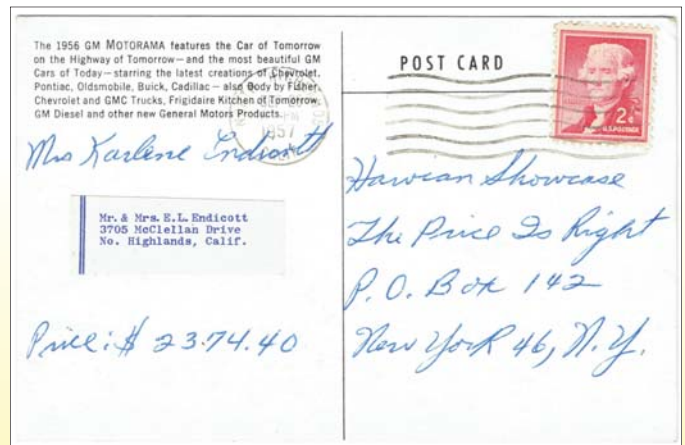 The 1956 GM MOTORAMA features the Car of Tomorrow
on the Highway of Tomorrow—and the most beautiful GM
Cars of Today—starring the latest creations of Chevrolet,
Pontiac, Oldsmobile, Buick, Cadillac—also Body by Fisher,
Chevrolet and GMC Trucks, Frigidaire Kitchen of Tomorrow,
GM Diesel and other new General Motors Products.
Mrs Karlene Endicott
Mr. & Mrs. E.L. Endicott
3705 McClellan Drive
No. Highlands, Calif.
Price: $ 23.74.40
POST CARD
1957
2¢
U.S. POSTAGE
Hawian Showcase
The Price Is Right
P.O. Box 142
New York 46, N.Y.